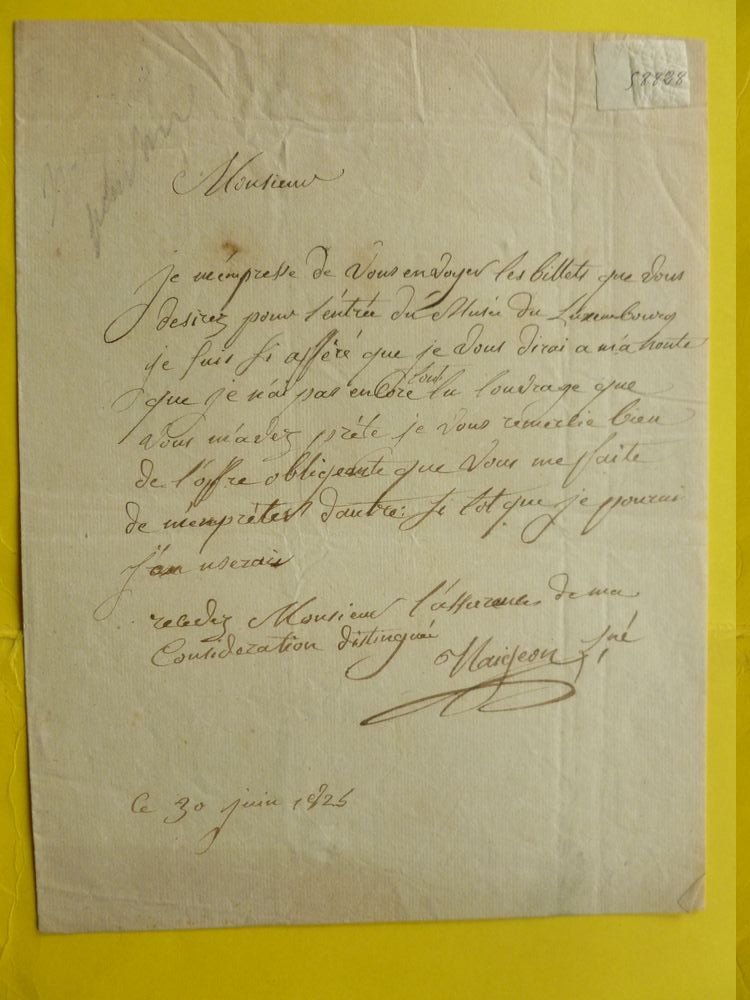 58828
Monsieur
je m'empresse de vous envoyer les billets que vous
desirez pour l'entrée du Musée du Luxembourg
je suis si afféré que je vous dirai a ma honte
que je n'ai pas encore tout lu l'ouvrage que
vous m'avez prété je vous remercie bien
de l'offre obligeante que vous me faite
de m'enpréter d'autre: si tot que je pourai
j'en userai
recevez Monsieur l'assurance de ma
Consideration distinguée
Naigeon
ce 30 juin 1825